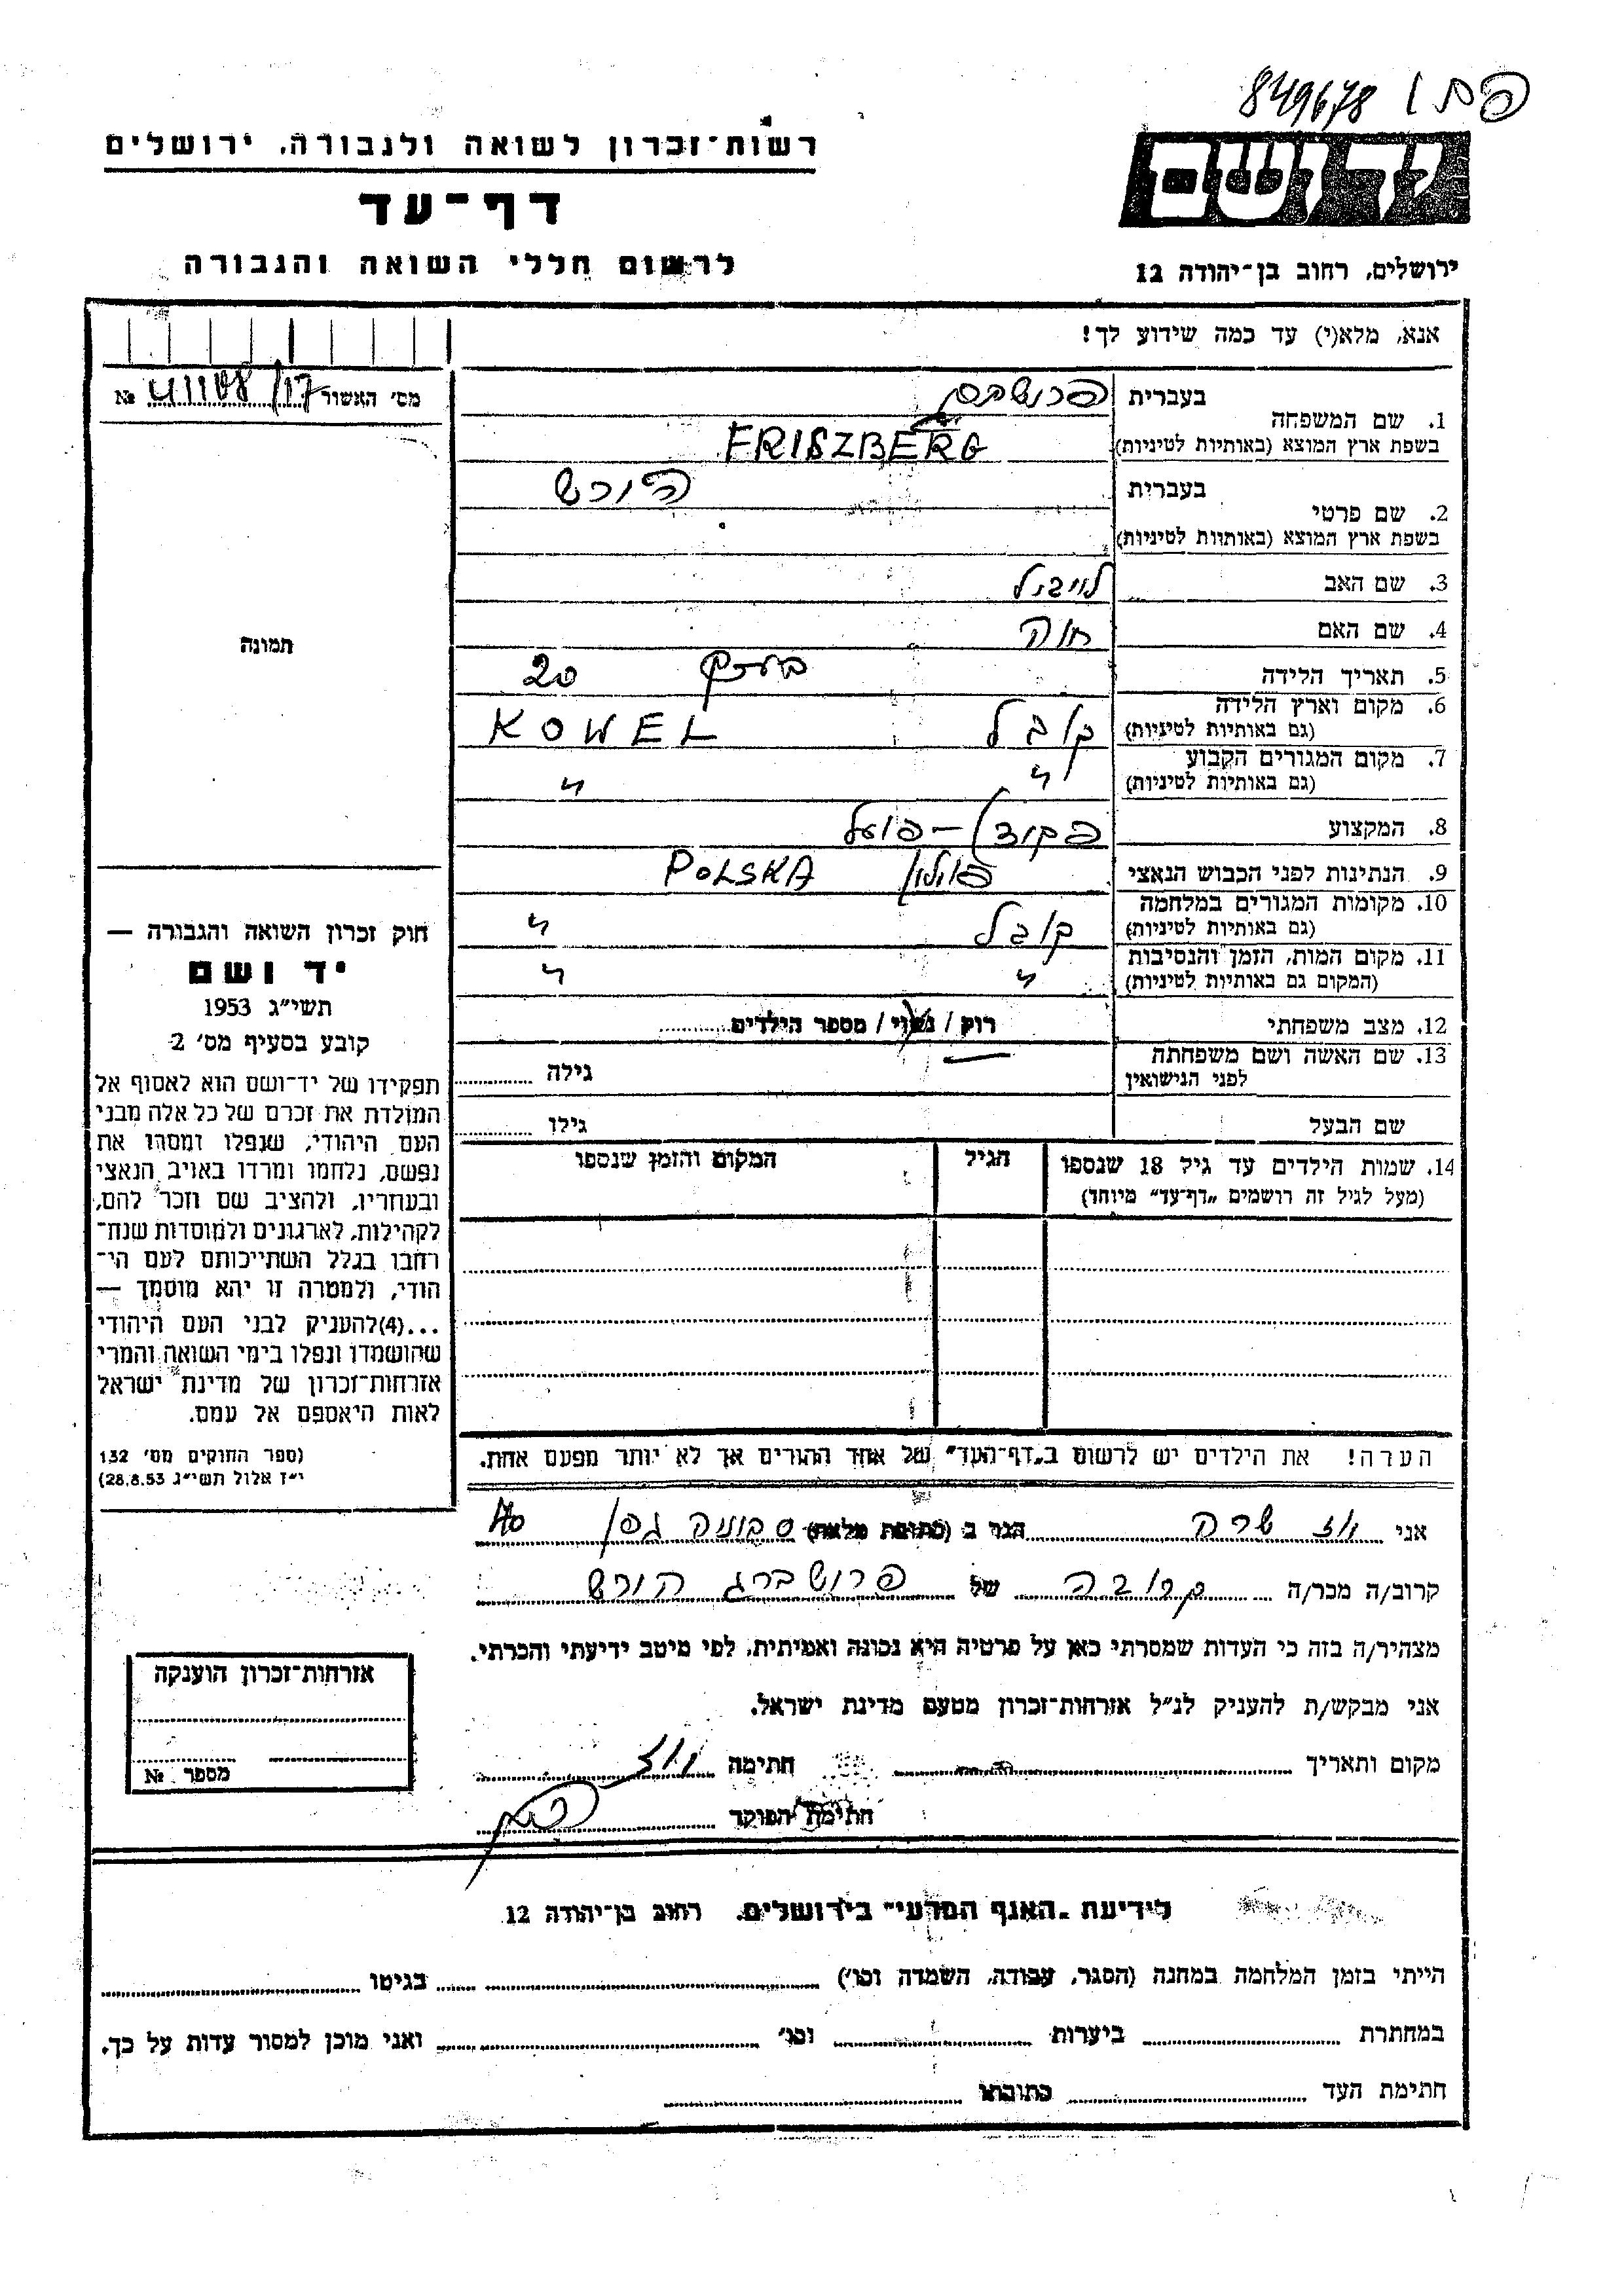 849678
רשות־זכרון לשואה ולגבורה, ירושלים
יד ושם
דף־עד
לרשום חללי השואה והגבורה
ירושלים, רחוב בן־יהודה 12
אנא, מלא(י) עד כמה שידוע לך!
מס׳ האשור №
1. שם המשפחה
בעברית
בשפת ארץ המוצא (באותיות לטיניות) FRISZBERG
2. שם פרטי
בעברית הורש
בשפת ארץ המוצא (באותיות לטיניות)
3. שם האב לייבל
4. שם האם חוה
5. תאריך הלידה בערך 20
6. מקום וארץ הלידה (גם באותיות לטיניות) קובל KOWEL
7. מקום המגורים הקבוע (גם באותיות לטיניות) " "
8. המקצוע פקיד - פועל
9. הנתינות לפני הכבוש הנאצי פולון POLSKA
10. מקומות המגורים במלחמה (גם באותיות לטיניות) קובל "
11. מקום המות, הזמן והנסיבות (המקום גם באותיות לטיניות) " "
12. מצב משפחתי רוק / נשוי / מספר הילדים
13. שם האשה ושם משפחתה לפני הנישואין — גילה
שם הבעל גילו
14. שמות הילדים עד גיל 18 שנספו (מעל לגיל זה רושמים „דף־עד" מיוחד) הגיל המקום והזמן שנספו
תמונה
חוק זכרון השואה והגבורה —
יד ושם
תשי״ג 1953
קובע בסעיף מס׳ 2
תפקידו של יד־ושם הוא לאסוף אל
המולדת את זכרם של כל אלה מבני
העם היהודי, שנפלו ומסרו את
נפשם, נלחמו ומרדו באויב הנאצי
ובעוזריו, ולהציב שם וזכר להם,
לקהילות, לארגונים ולמוסדות שנח־
רבו בגלל השתייכותם לעם הי־
הודי, ולמטרה זו יהא מוסמך —
...(4) להעניק לבני העם היהודי
שהושמדו ונפלו בימי השואה והמרי
אזרחות־זכרון של מדינת ישראל
לאות היאספם אל עמם.
(ספר החוקים מס׳ 132
י״ז אלול תשי״ג 28.8.53)
הערה! את הילדים יש לרשום ב„דף־העד" של אחד ההורים אך לא יותר מפעם אחת.
אני ווז שרה הגר ב (כתובת מלאה) גפן
קרוב/ה מכר/ה קרובה של פרושברג הורש
מצהיר/ה בזה כי העדות שמסרתי כאן על פרטיה היא נכונה ואמיתית, לפי מיטב ידיעתי והכרתי.
אני מבקש/ת להעניק לנ״ל אזרחות־זכרון מטעם מדינת ישראל.
מקום ותאריך חתימה ווז
חתימת הפוקד
אזרחות־זכרון הוענקה
מספר №
לידיעת „האגף המדעי" בירושלים, רחוב בן־יהודה 12
הייתי בזמן המלחמה במחנה (הסגר, עבודה, השמדה וכו׳) בגיטו
במחתרת ביערות וכו׳ ואני מוכן למסור עדות על כך.
חתימת העד כתובתו